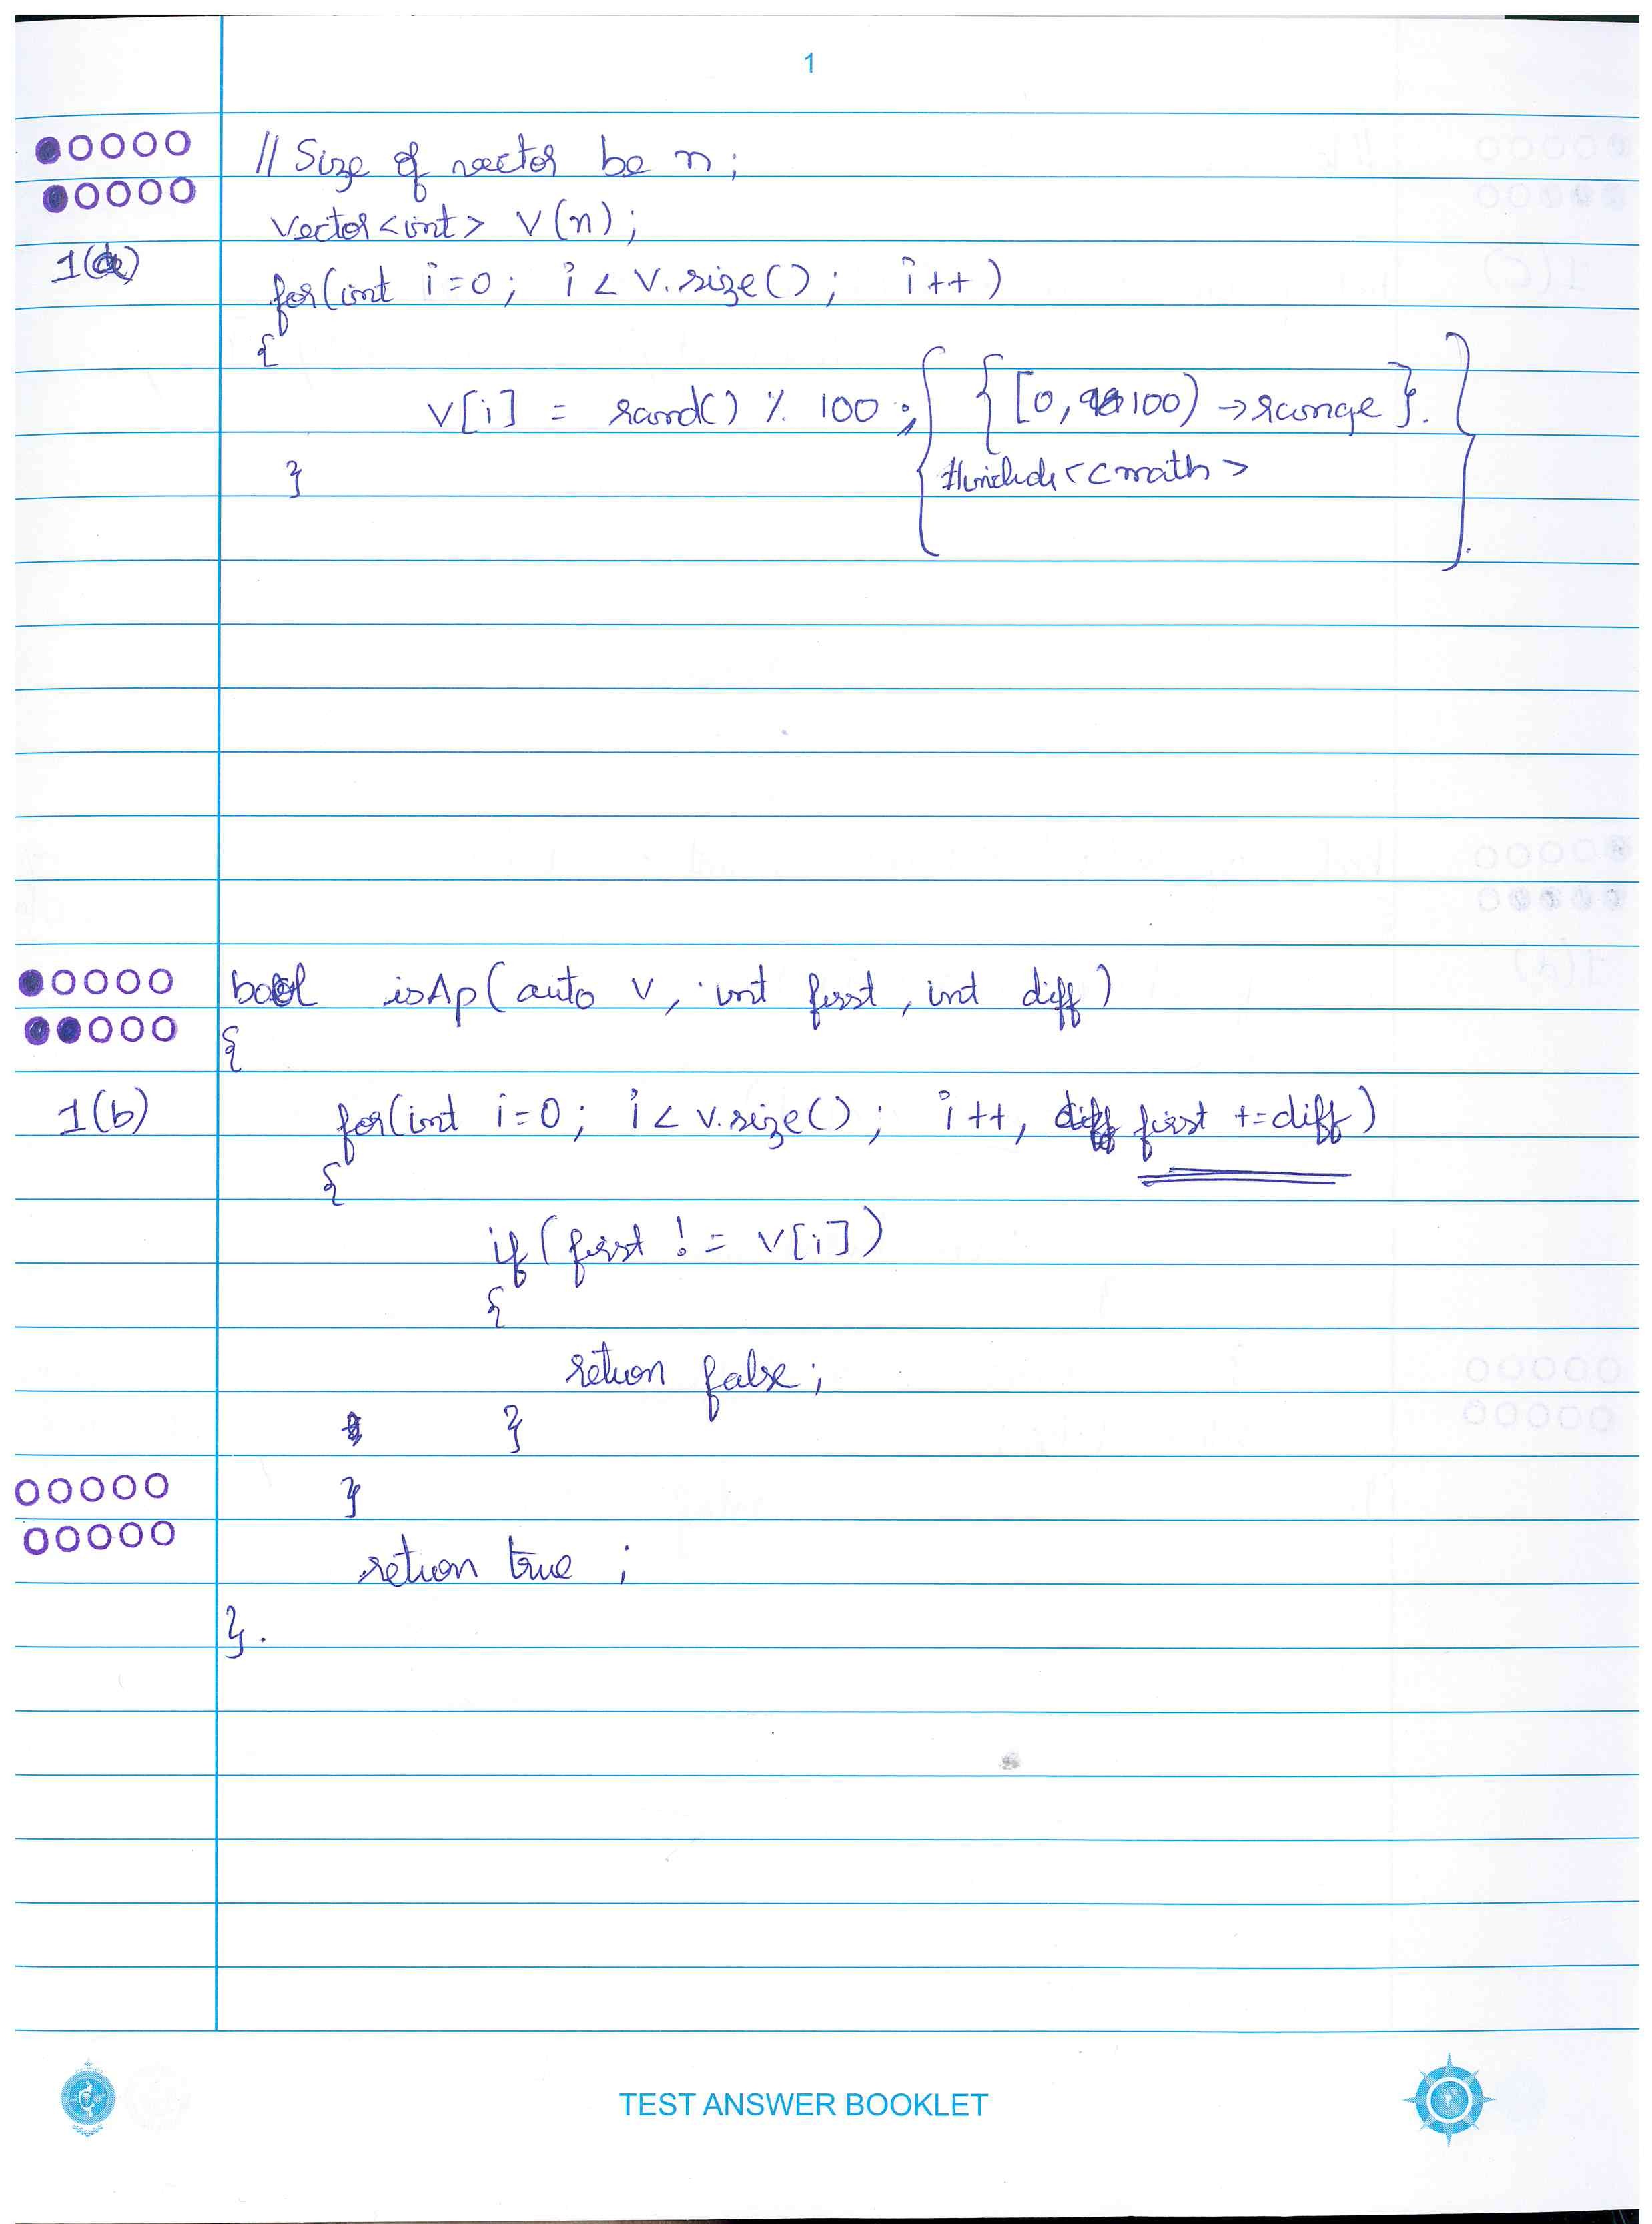 1
// Size of vector be n;
vector<int> v(n);
1(a)
for(int i=0; i < v.size(); i++)
{
v[i] = rand() % 100; { [0, 100) → range }.
} #include <cmath>
bool isAp(auto v, int first, int diff)
{
1(b) for(int i=0; i < v.size(); i++, first += diff)
{
if (first != v[i])
{
return false;
}
}
return true ;
}.
TEST ANSWER BOOKLET